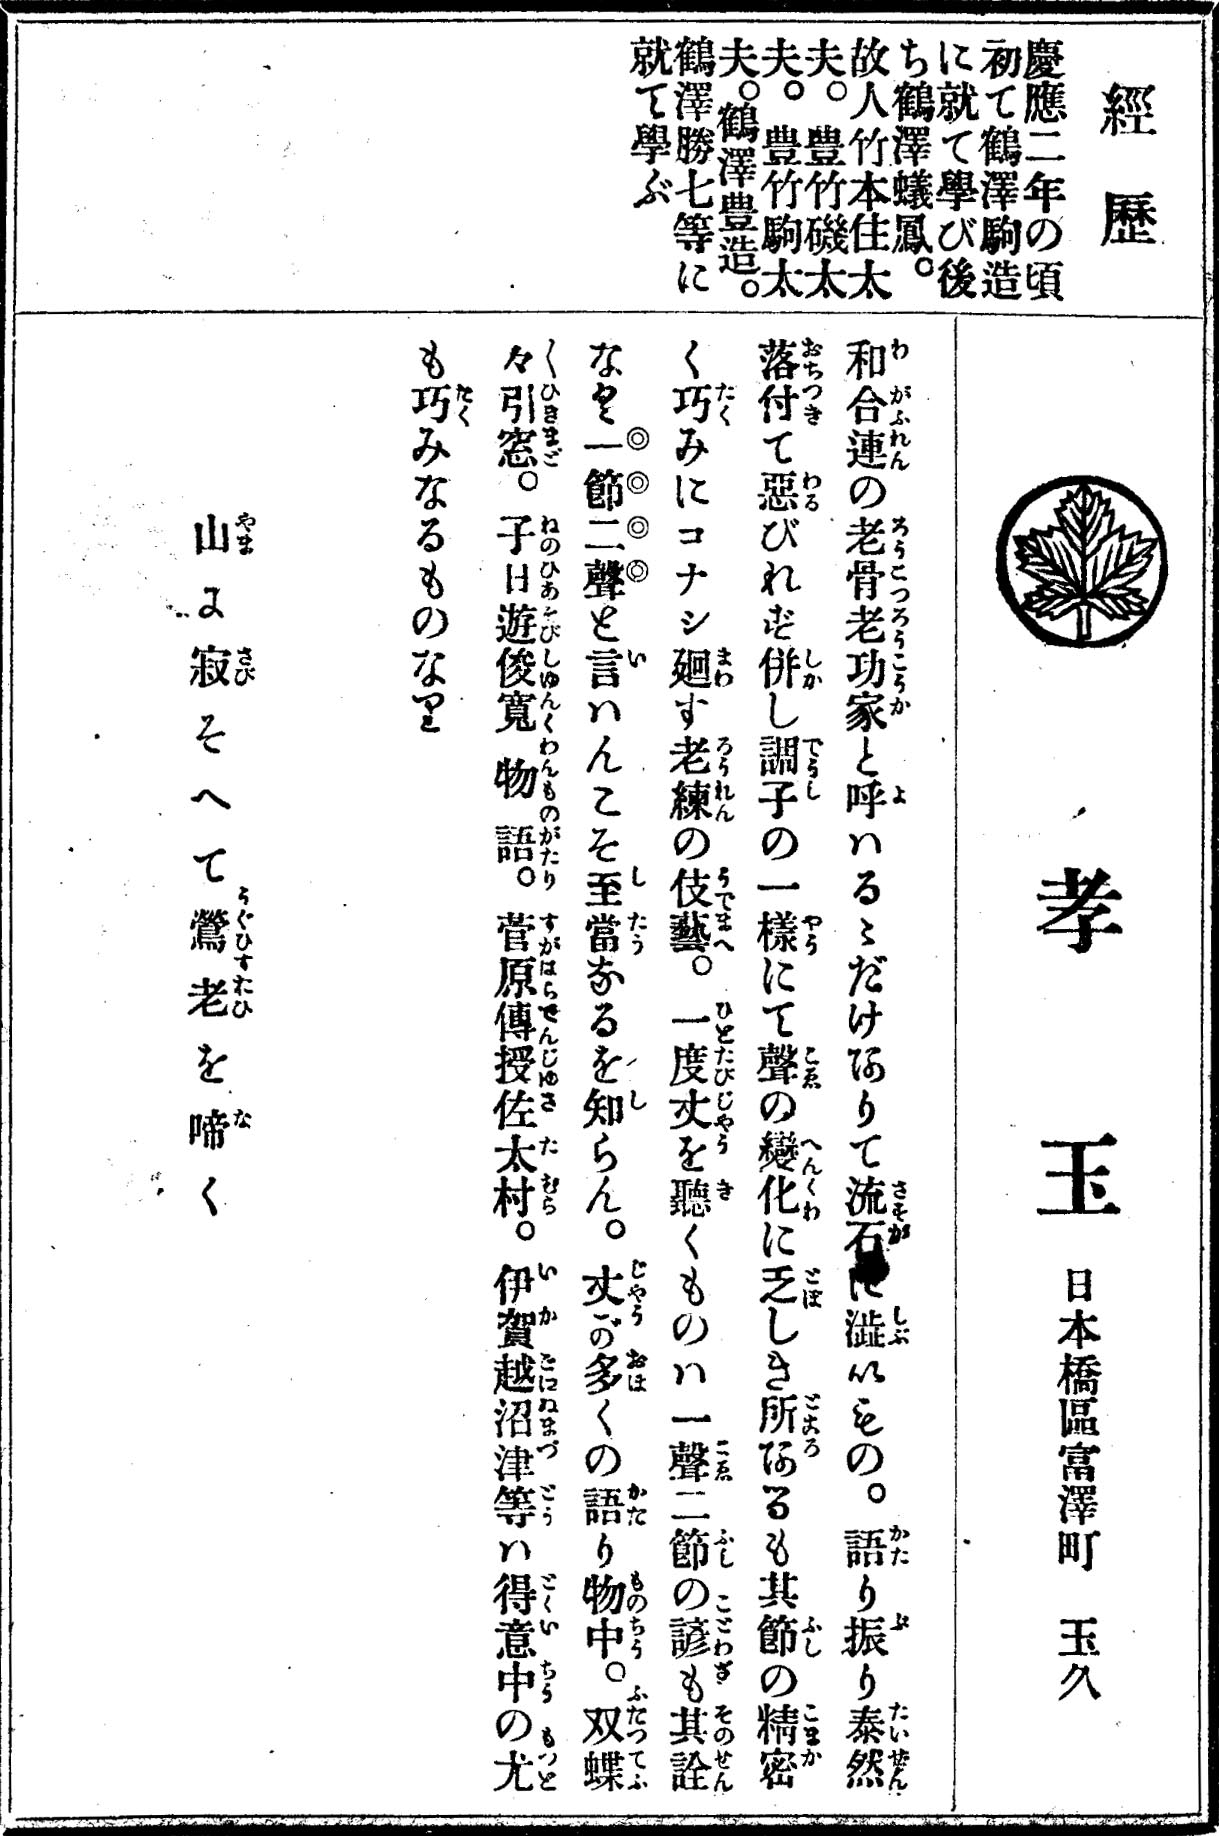 經歷
慶應二年の頃
初て鶴澤駒造
に就て學び後
ち鶴澤蟻鳳。
故人竹本住太
夫。豊竹磯太
夫。豊竹駒太
夫。鶴澤豊造。
鶴澤勝七等に
就て學ぶ
孝玉 日本橋區富澤町 玉久
和合連の老骨老功家と呼ハるゝだけありて流石に澁いもの。語り振り泰然
落付て惡びれず併し調子の一樣にて聲の變化に乏しき所あるも其節の精密
く巧みにコナシ廻す老練の伎藝。一度丈を聽くものハ一聲二節の諺も其詮
なく一節二聲と言ハんこそ至當なるを知らん。丈が多くの語り物中。双蝶
々引窓。子日遊俊寬物語。菅原傳授佐太村。伊賀越沼津等ハ得意中の尤
も巧みなるものなり
山に寂そへて鶯老を啼く